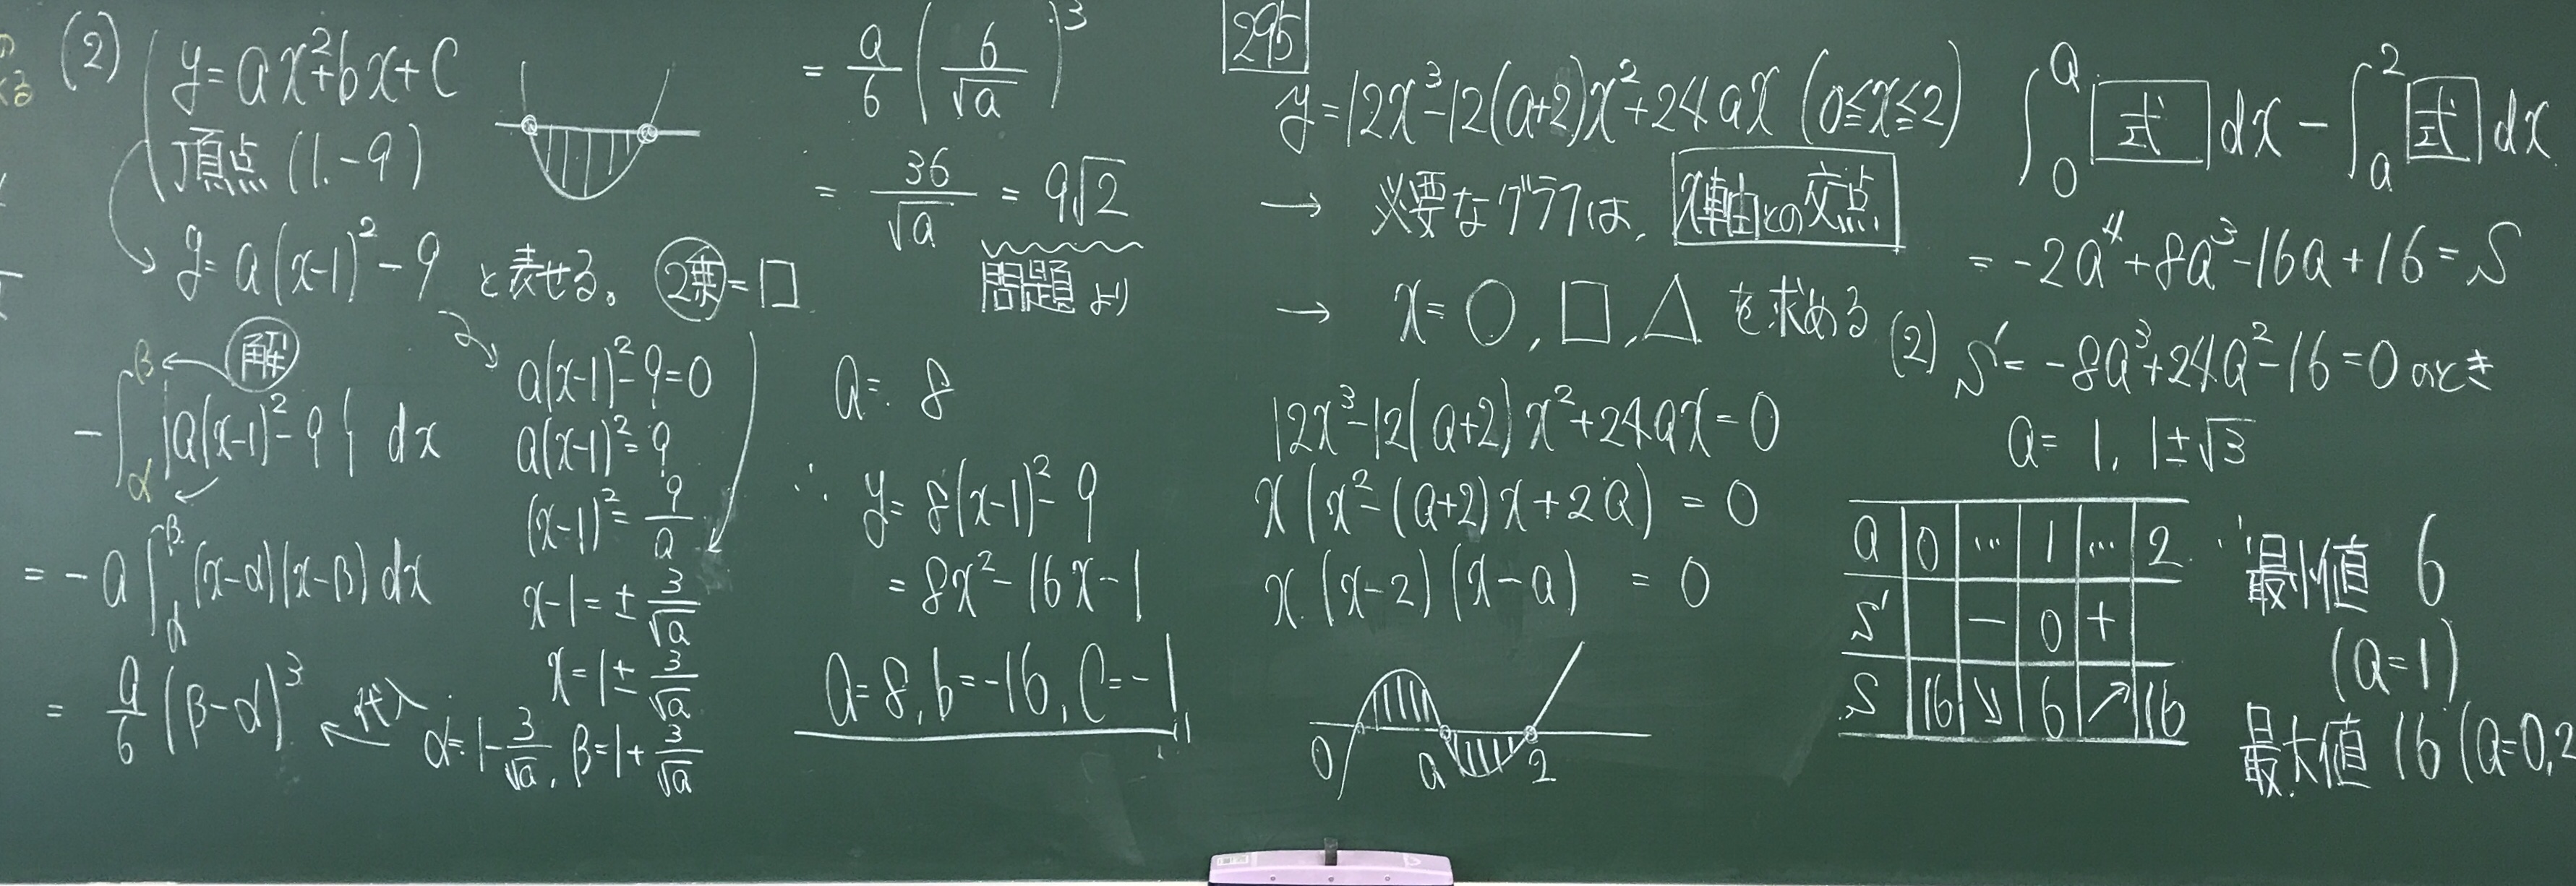 (2)
y=ax²+bx+c
頂点 (1.-9)
y=a(x-1)²-9 と表せる。 2乗=□
β ← 解
-∫_α^β {a(x-1)²-9} dx
= -a∫_α^β (x-α)(x-β)dx
= a/6 (β-α)³ ← 代入
a(x-1)²-9=0
a(x-1)²=9
(x-1)²=9/a
x-1=±3/√a
x=1±3/√a
α=1-3/√a, β=1+3/√a
= a/6 (6/√a)³
= 36/√a = 9√2
問題より
a= 8
∴ y=8(x-1)²-9
=8x²-16x-1
a=8, b=-16, C=-1
295
y=12x³-12(a+2)x²+24ax (0≦x≦2)
→ 必要なグラフは, x軸との交点
→ x=○, □, △ を求める
12x³-12(a+2)x²+24ax=0
x(x²-(a+2)x+2a) = 0
x(x-2)(x-a) = 0
0 a 2
∫_0^a 式 dx - ∫_a^2 式 dx
= -2a⁴+8a³-16a+16=S
(2) S'= -8a³+24a²-16=0 のとき
a= 1, 1±√3
a 0 … 1 … 2
S' - 0 +
S 16 ↘ 6 ↗ 16
∴ 最小値 6
(a=1)
最大値 16 (a=0,2